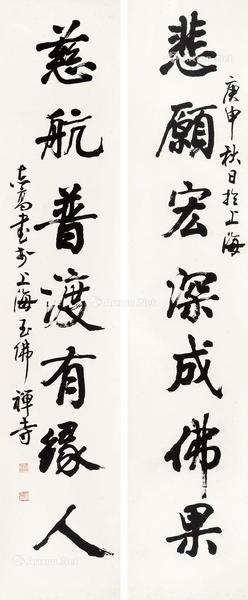 悲願宏深成佛果
庚申秋日於上海
慈航普渡有緣人
志高書於上海玉佛禪寺